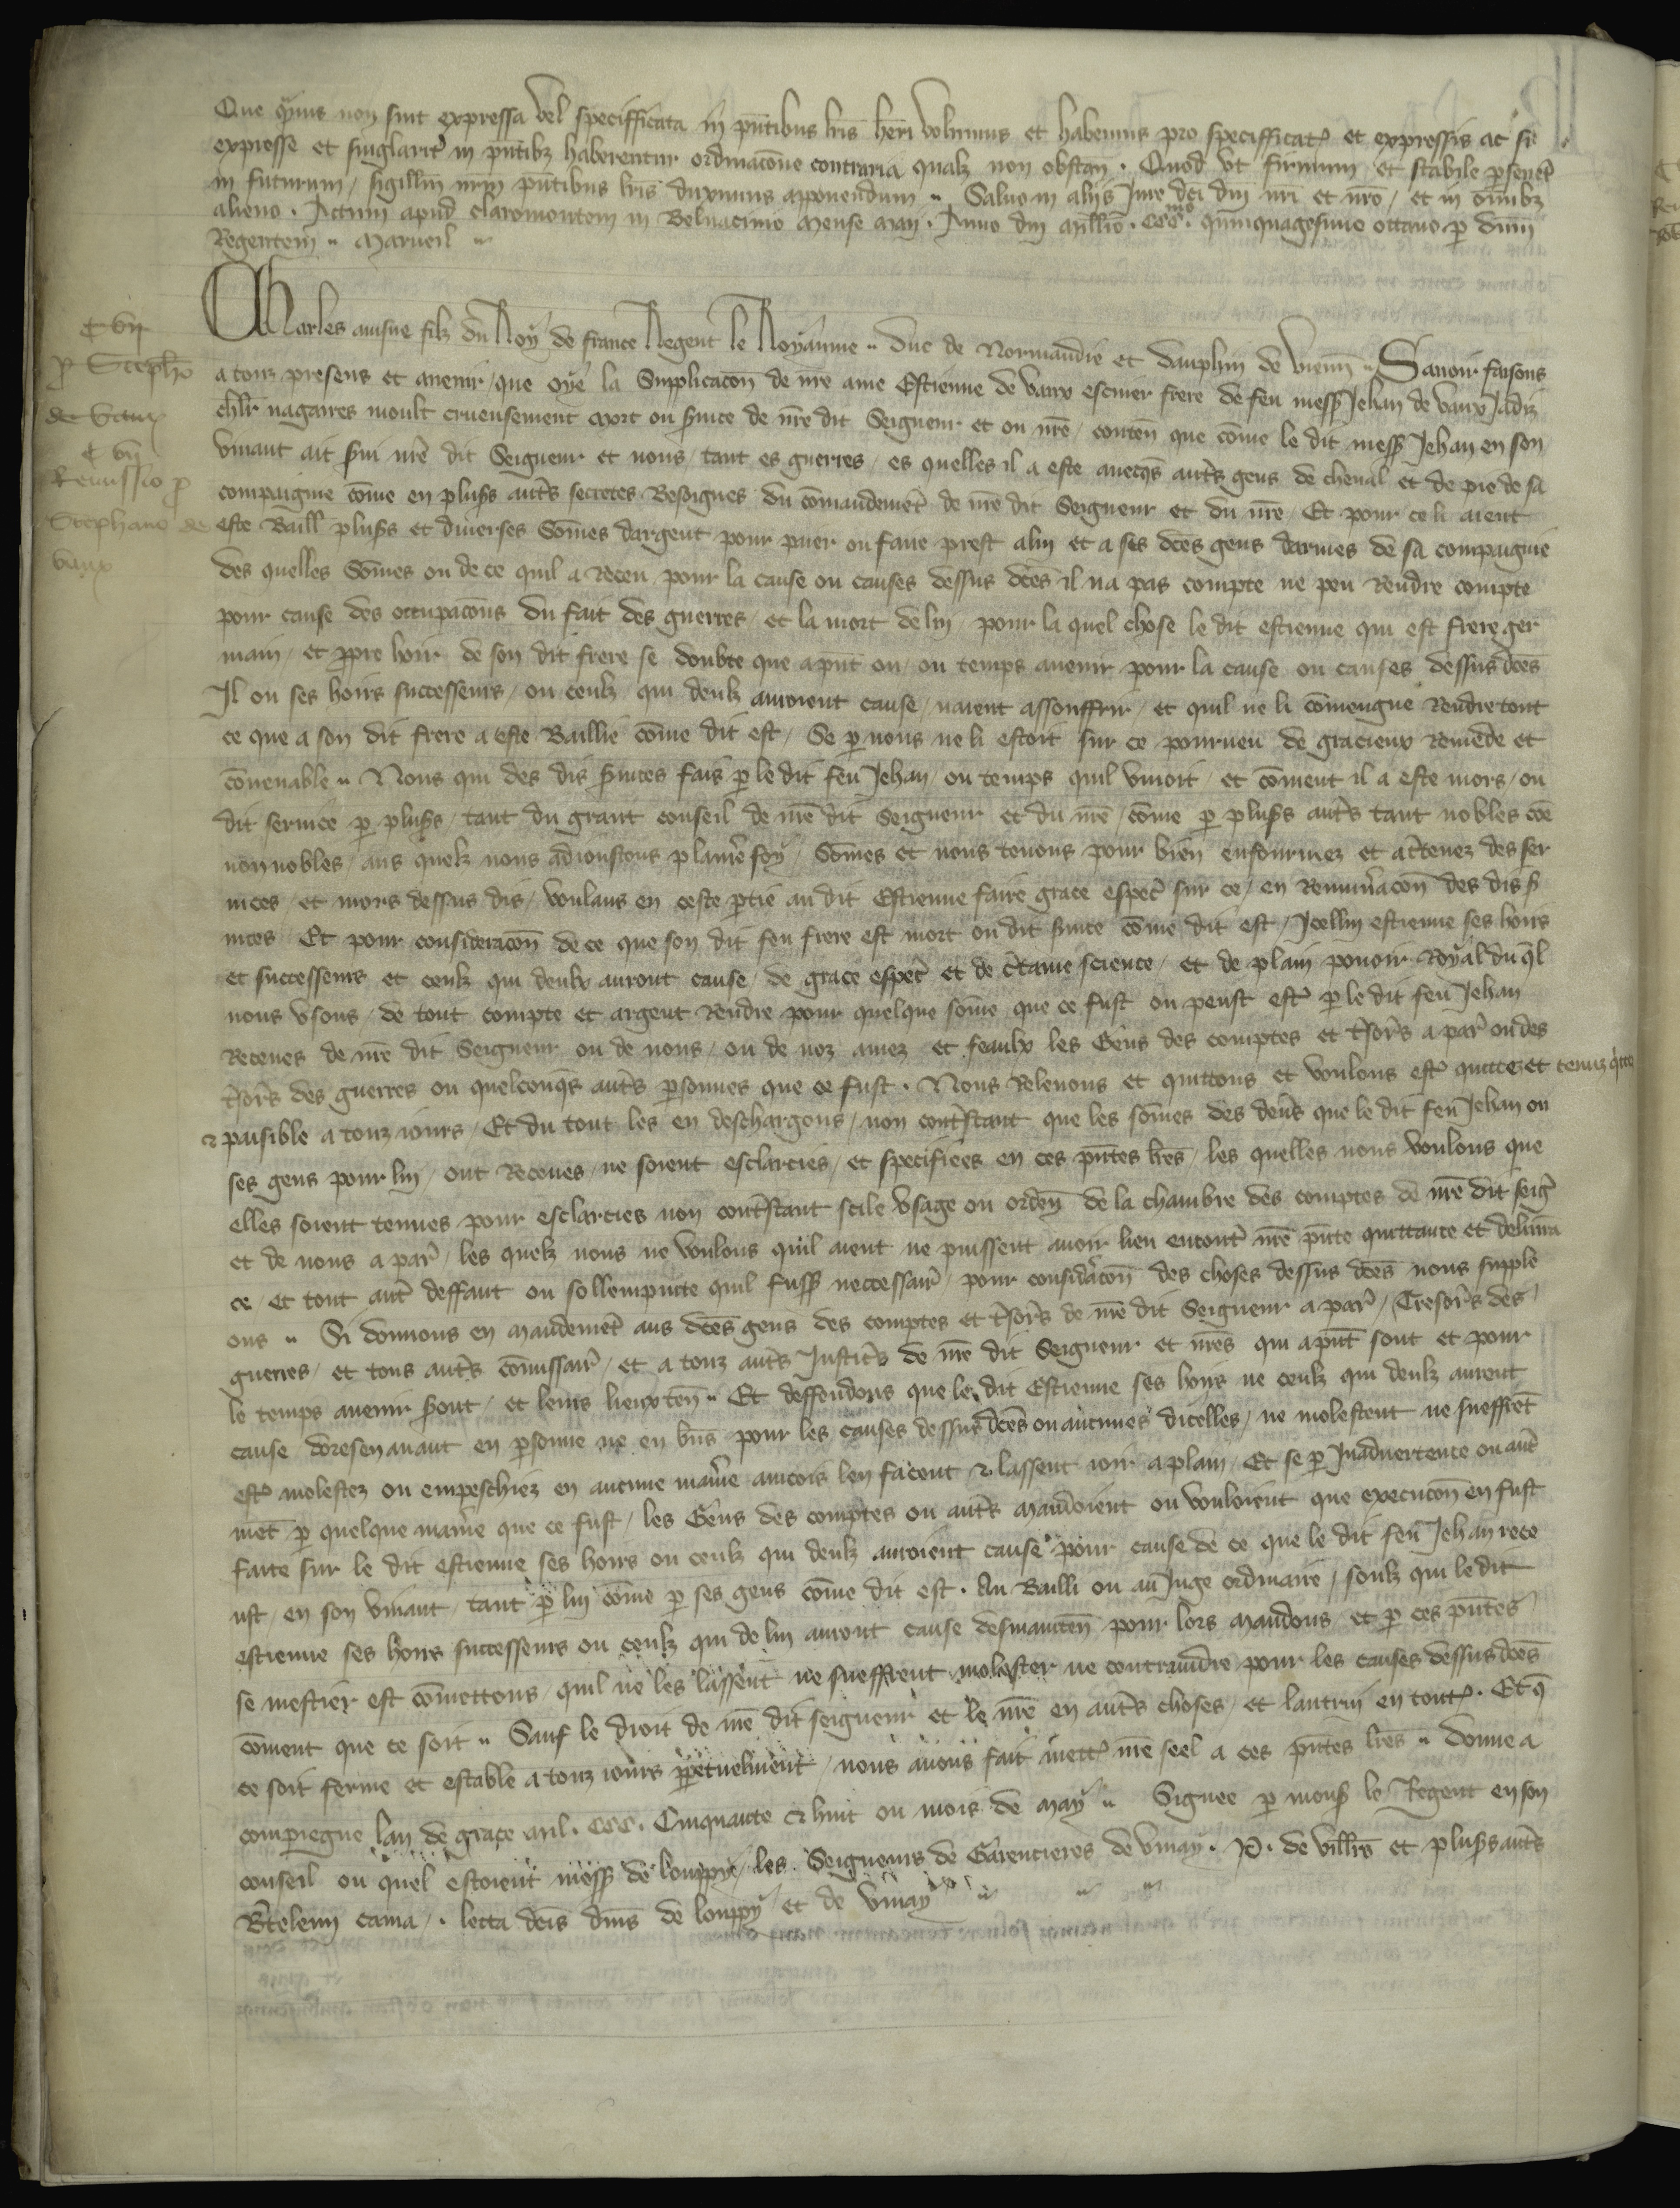 Que quis non sint expressa vel specifficata in pntibus lris heri volumus et habemus pro specifficat et expressis ac si
expresse et singlarit in pntibz haberentur ordinacone contraria qualz non obstan . Quod ut firmum et stabile perseveret
in futurum / sigillum nrm pntibus lris duximus apponendum .. Salvo in aliis Jure dci dni nri et nro / et in omibz
alieno . Actum apud claromontem in Belvacinio mense maii . Anno dni millio . CCCmo . quinquagesimo octavo p dnm
Regentem .. Marueil ..
Charles ainsne filz du Roy de france Regent le Royaume .. duc de Normandie et dauphin de vienn .. Savoir faisons
C vij
p Stepho
de Vaux
C vij
Remissio p
Stephano de
vaux
a touz presens et avenir / que oye la Supplicacon de nre ame Estienne de vaux escuier frere de feu mess Jehan de vaux Jadiz
chlr nagaires moult crueusement mort ou svice de nre dit Seigneur et ou nre / conten que come le dit mess Jehan en son
vivant ait svi nre dit Seigneur et nous / tant es guerres / es quelles il a este avecqs autrs gens de cheval et de pie de sa
compaignie come en plusrs autrs secretes Besoignes du comandemet de nre dit Seigneur et du nre / Et pour ce li aient
este Baill plusrs et diverses Somes dargent pour paier ou faire prest a lui et a ses dces gens darmes de sa compaignie
des quelles Somes ou de ce quil a Receu pour la cause ou causes dessus dces il na pas compte ne peu Rendre compte
pour cause des occupacons du fait des guerres / et la mort de lui / pour la quel chose le dit estienne qui est frere ger
main / et ppre hoir de son dit frere se doubte que a pnt ou / ou temps avenir pour la cause ou causes dessus dces
Il ou ses hoirs successeurs / ou ceulz qui deulz auroient cause / naient assouffrir / et quil ne li conviengne Rendre tout
ce que a son dit frere a este Baillie come dit est / Se p nous ne li estoit sur ce pourveu de gracieux Remede et
convenable .. Nous qui des dis svices fais p le dit feu Jehan / ou temps quil vivoit / et coment il a este mors / ou
dit service p plusrs / tant du grant conseil de nre dit Seigneur et du nre / come p plusrs autrs tant nobles coe
non nobles / aus quelz nous adioustons planie foy / Somes et nous tenons pour bien enfourmez et acertenez des ser
vices / et mors dessus dis / voulans en ceste ptie au dit Estienne faire grace espec sur ce / en Remunacon des dis s
vices Et pour consideracon de ce que son dit feu frere est mort ou dit svice come dit est / Icellui estienne ses hoirs
et successeurs et ceulz qui deulx auront cause / de grace espec et de ctaine science / et de plain pouoir Royal du ql
nous usons / de tout compte et argent Rendre pour quelque some que ce fust ou peust est p le dit feu Jehan
Receues de nre dit Seigneur ou de nous / ou de noz amez et feaulx les Gens des comptes et tsors a par ou des
tsors des guerres ou quelconqs autrs psonnes que ce fust . Nous Relevons et quittons et voulons est quittez et tenuz qtte
et paisible a touz iours / Et du tout les en deschargons / non contstant que les somes des dens que le dit feu Jehan ou
ses gens pour lui / ont Receues / ne soient esclarcies / et specifiees en ces pntes lres / les quelles nous voulons que
elles soient tenues pour esclarcies non contstant stile usage ou orden de la chambre des comptes de nre dit seigr
et de nous a par / les quelz nous ne voulons quil aient ne puissent avoir lieu encont nre pnte quittance et delivra
ce / et tout aut deffaut ou sollempnite quil fuss neccessair / pour consideracon des choses dessus dces nous supple
ons .. Si donnons en mandemet aus dces gens des comptes et tsors de nre dit Seigneur a par / Tresors des
guerres / et tous autrs comissair / et a touz autrs Justicrs de nre dit Seigneur et nres qui a pnt sont et pour
le temps avenir sront / et leurs lieuxten .. Et deffendons que le dit Estienne ses hoirs ne ceulz qui deulz auront
cause doresenavant en psonne ne en bns pour les causes dessus dces ou aucunes dicelles / ne molestent ne sueffrent
est molestez ou empeschiez en aucune maniere aincois len facent & laissent ioir a plain / Et se p Inadvertence ou aut
met p quelque maniere que ce fust / les Gens des comptes ou autrs mandoient ou vouloient que execucon en fust
faite sur le dit estienne ses hoirs ou ceulz qui deulz auroient cause pour cause de ce que le dit feu Jehan rece
ust / en son vivant / tant p lui come p ses gens come dit est . Au Bailli ou au Juge ordinaire / soulz qui le dit
estienne ses hoirs successeurs ou ceulz qui de lui auront cause desmainten pour lors mandons / et p ces pntes
se mestier est comettons / quil ne les laissent ne sueffrent molester ne contraindre pour les causes dessus dces
coment que ce soit .. Sauf le droit de nre dit seigneur et le nre en autrs choses / et lautrui en tout . Et q
ce soit ferme et estable a touz iours ppetuelment / nous avons fait mett nre seel a ces pntes lres .. donne a
compiegne lan de grace mil . CCC . Cinquante & huit ou mois de may .. Signee p mons le Regent en son
conseil ou quel estoient mess de louppy / les Seigneurs de Garencieres de vinay . P . de villrs et plusrs autrs
Btelemi cama / . lecta dcis dnis de louppy et de vinay ..